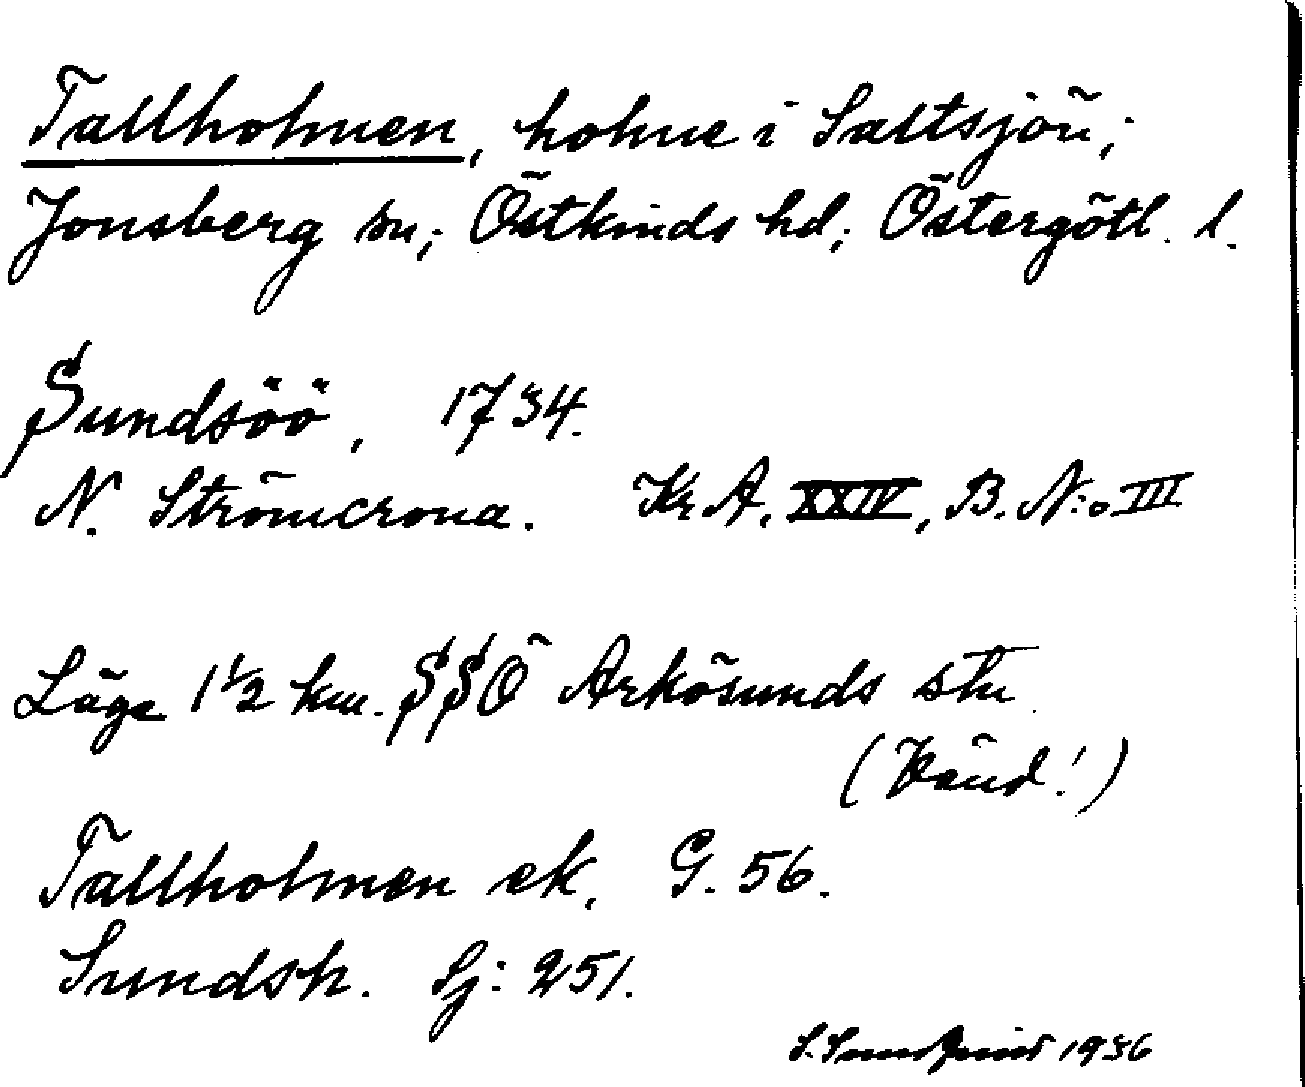 Tallholmen, holme i Saltsjön;
Jonsberg sn; Östkinds hd; Östergötl. l.
Sundsöö, 1734.
N. Strömcrona. Kr A. XXIV, B. N:o III
Läge 1 1/2 km. SSÖ Arkösunds stn.
(Vänd!)
Tallholmen ek. G. 56.
Sundsh. Sj: 251.
S. 1936